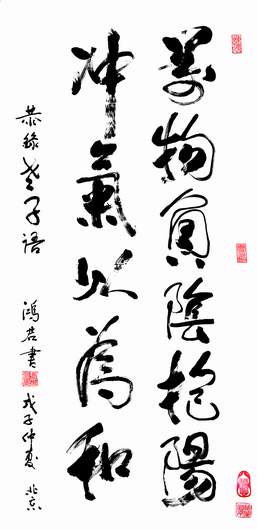 萬物負陰抱陽
冲氣以為和
恭錄老子語 鴻君書 戊子仲夏 北京